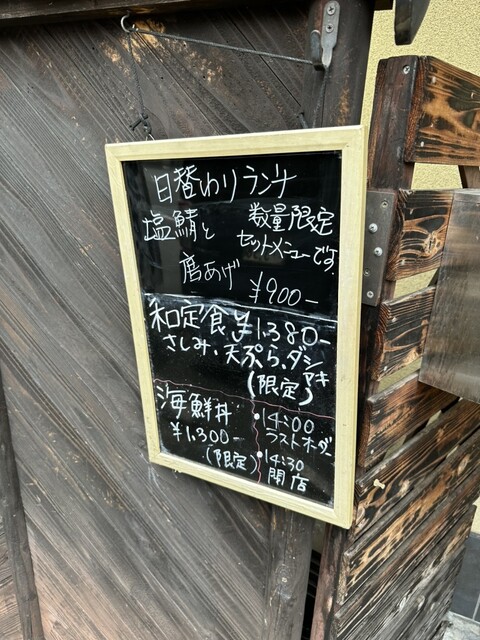 日替わりランチ
塩鯖と
唐あげ
数量限定
セットメニューです
¥900-
和定食 ¥1,380-
さしみ、天ぷら、ダシ
マキ
(限定)
海鮮丼
¥1,300-
(限定)
・14:00
ラストオーダー
・14:30
閉店